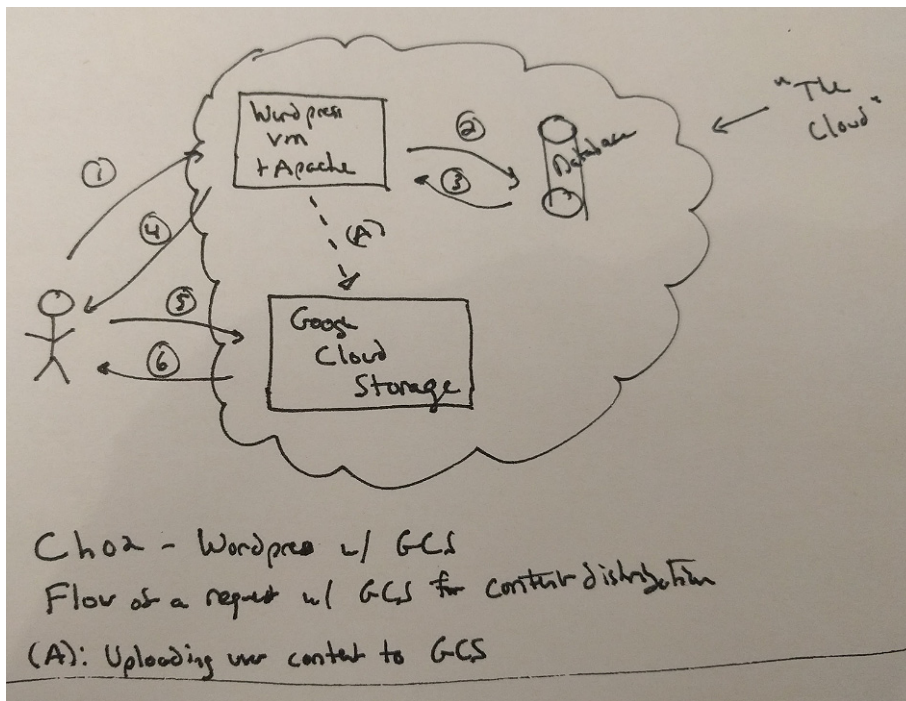 "The
Cloud"
Wordpress
VM
+ Apache
①
②
③
Database
④
(A)
⑤
⑥
Google
Cloud
Storage
Ch02 - Wordpress w/ GCS
Flow of a request w/ GCS for content distribution
(A): Uploading user content to GCS